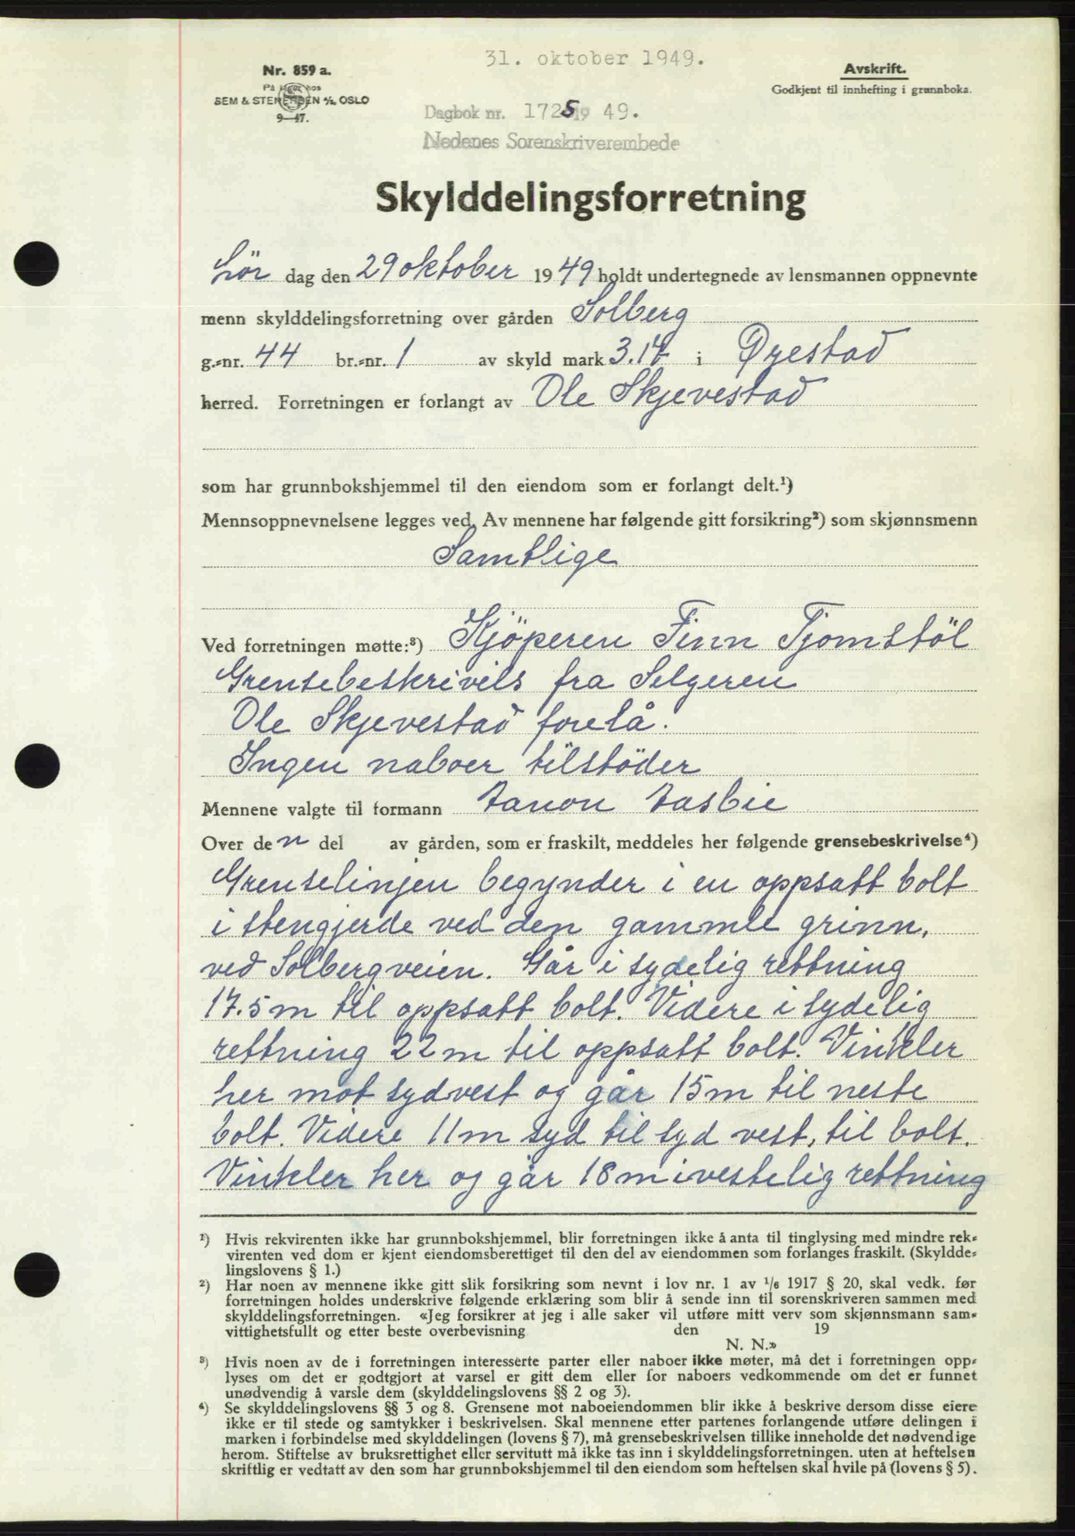 31. oktober 1949.
Nr. 859 a.
På lager hos
SEM & STENERSEN A/S, OSLO
9—47.
Avskrift.
Godkjent til innhefting i grunnboka.
Dagbok nr. 1725 19 49.
Nedenes Sorenskriverembede
Skylddelingsforretning
Lör dag den 29 oktober 1949 holdt undertegnede av lensmannen oppnevnte
menn skylddelingsforretning over gården Solberg
g.-nr. 44 br.-nr. 1 av skyld mark 3.17 i Øyestad
herred. Forretningen er forlangt av Ole Skjevestad
som har grunnbokshjemmel til den eiendom som er forlangt delt.¹)
Mennsoppnevnelsene legges ved. Av mennene har følgende gitt forsikring²) som skjønnsmenn
Samtlige
Ved forretningen møtte:³) Kjöperen Finn Tjomstöl
Grensebeskrivels fra Selgeren
Ole Skjevestad forelå.
Ingen naboer tilstöder
Mennene valgte til formann Aanon Aasbie
Over den del av gården, som er fraskilt, meddeles her følgende grensebeskrivelse⁴)
Grenselinjen begynder i en oppsatt bolt
i stengjerde ved den gammle grinn,
ved Solbergveien. Går i sydelig rettning
17.5 m til oppsatt bolt. Videre i sydelig
rettning 22 m til oppsatt bolt. Vinkler
her mot sydvest og går 15 m til neste
bolt. Videre 11 m syd til syd vest, til bolt.
Vinkler her og går 18 m i vestelig rettning
¹) Hvis rekvirenten ikke har grunnbokshjemmel, blir forretningen ikke å anta til tinglysing med mindre rek-
virenten ved dom er kjent eiendomsberettiget til den del av eiendommen som forlanges fraskilt. (Skyldde-
lingslovens § 1.)
²) Har noen av mennene ikke gitt slik forsikring som nevnt i lov nr. 1 av 1/6 1917 § 20, skal vedk. før
forretningen holdes underskrive følgende erklæring som blir å sende inn til sorenskriveren sammen med
skylddelingsforretningen. «Jeg forsikrer at jeg i alle saker vil utføre mitt verv som skjønnsmann sam-
vittighetsfullt og etter beste overbevisning den 19
N. N.»
³) Hvis noen av de i forretningen interesserte parter eller naboer ikke møter, må det i forretningen opp-
lyses om det er godtgjort at varsel er gitt dem eller for naboers vedkommende om det er funnet
unødvendig å varsle dem (skylddelingslovens §§ 2 og 3).
⁴) Se skylddelingslovens §§ 3 og 8. Grensene mot naboeiendommen blir ikke å beskrive dersom disse eiere
ikke er til stede og samtykker i beskrivelsen. Skal mennene etter partenes forlangende utføre delingen i
marken i forbindelse med skylddelingen (lovens § 7), må grensebeskrivelsen tillike inneholde det nødvendige
herom. Stiftelse av bruksrettighet eller servitutt må ikke tas inn i skylddelingsforretningen. uten at heftelsen
skriftlig er vedtatt av den som har grunnbokshjemmel til den eiendom som heftelsen skal hvile på (lovens § 5).